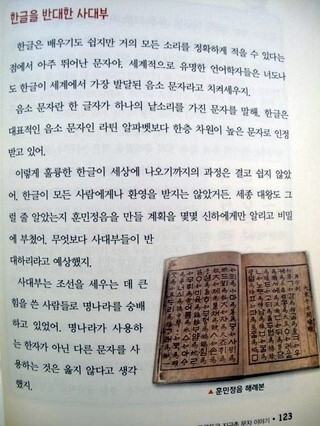 한글을 반대한 사대부
한글은 배우기도 쉽지만 거의 모든 소리를 정확하게 적을 수 있다는
점에서 아주 뛰어난 문자야. 세계적으로 유명한 언어학자들은 너도나
도 한글이 세계에서 가장 발달된 음소 문자라고 치켜세우지.
음소 문자란 한 글자가 하나의 낱소리를 가진 문자를 말해. 한글은
대표적인 음소 문자인 라틴 알파벳보다 한층 차원이 높은 문자로 인정
받고 있어.
이렇게 훌륭한 한글이 세상에 나오기까지의 과정은 결코 쉽지 않았
어. 한글이 모든 사람에게나 환영을 받지는 않았거든. 세종 대왕도 그
럴 줄 알았는지 훈민정음을 만들 계획을 몇몇 신하에게만 알리고 비밀
에 부쳤어. 무엇보다 사대부들이 반
대하리라고 예상했지.
사대부는 조선을 세우는 데 큰
힘을 쓴 사람들로 명나라를 숭배
하고 있었어. 명나라가 사용하
는 한자가 아닌 다른 문자를 사
용하는 것은 옳지 않다고 생각
했지.
▲ 훈민정음 해례본
지구촌 문자 이야기 • 123